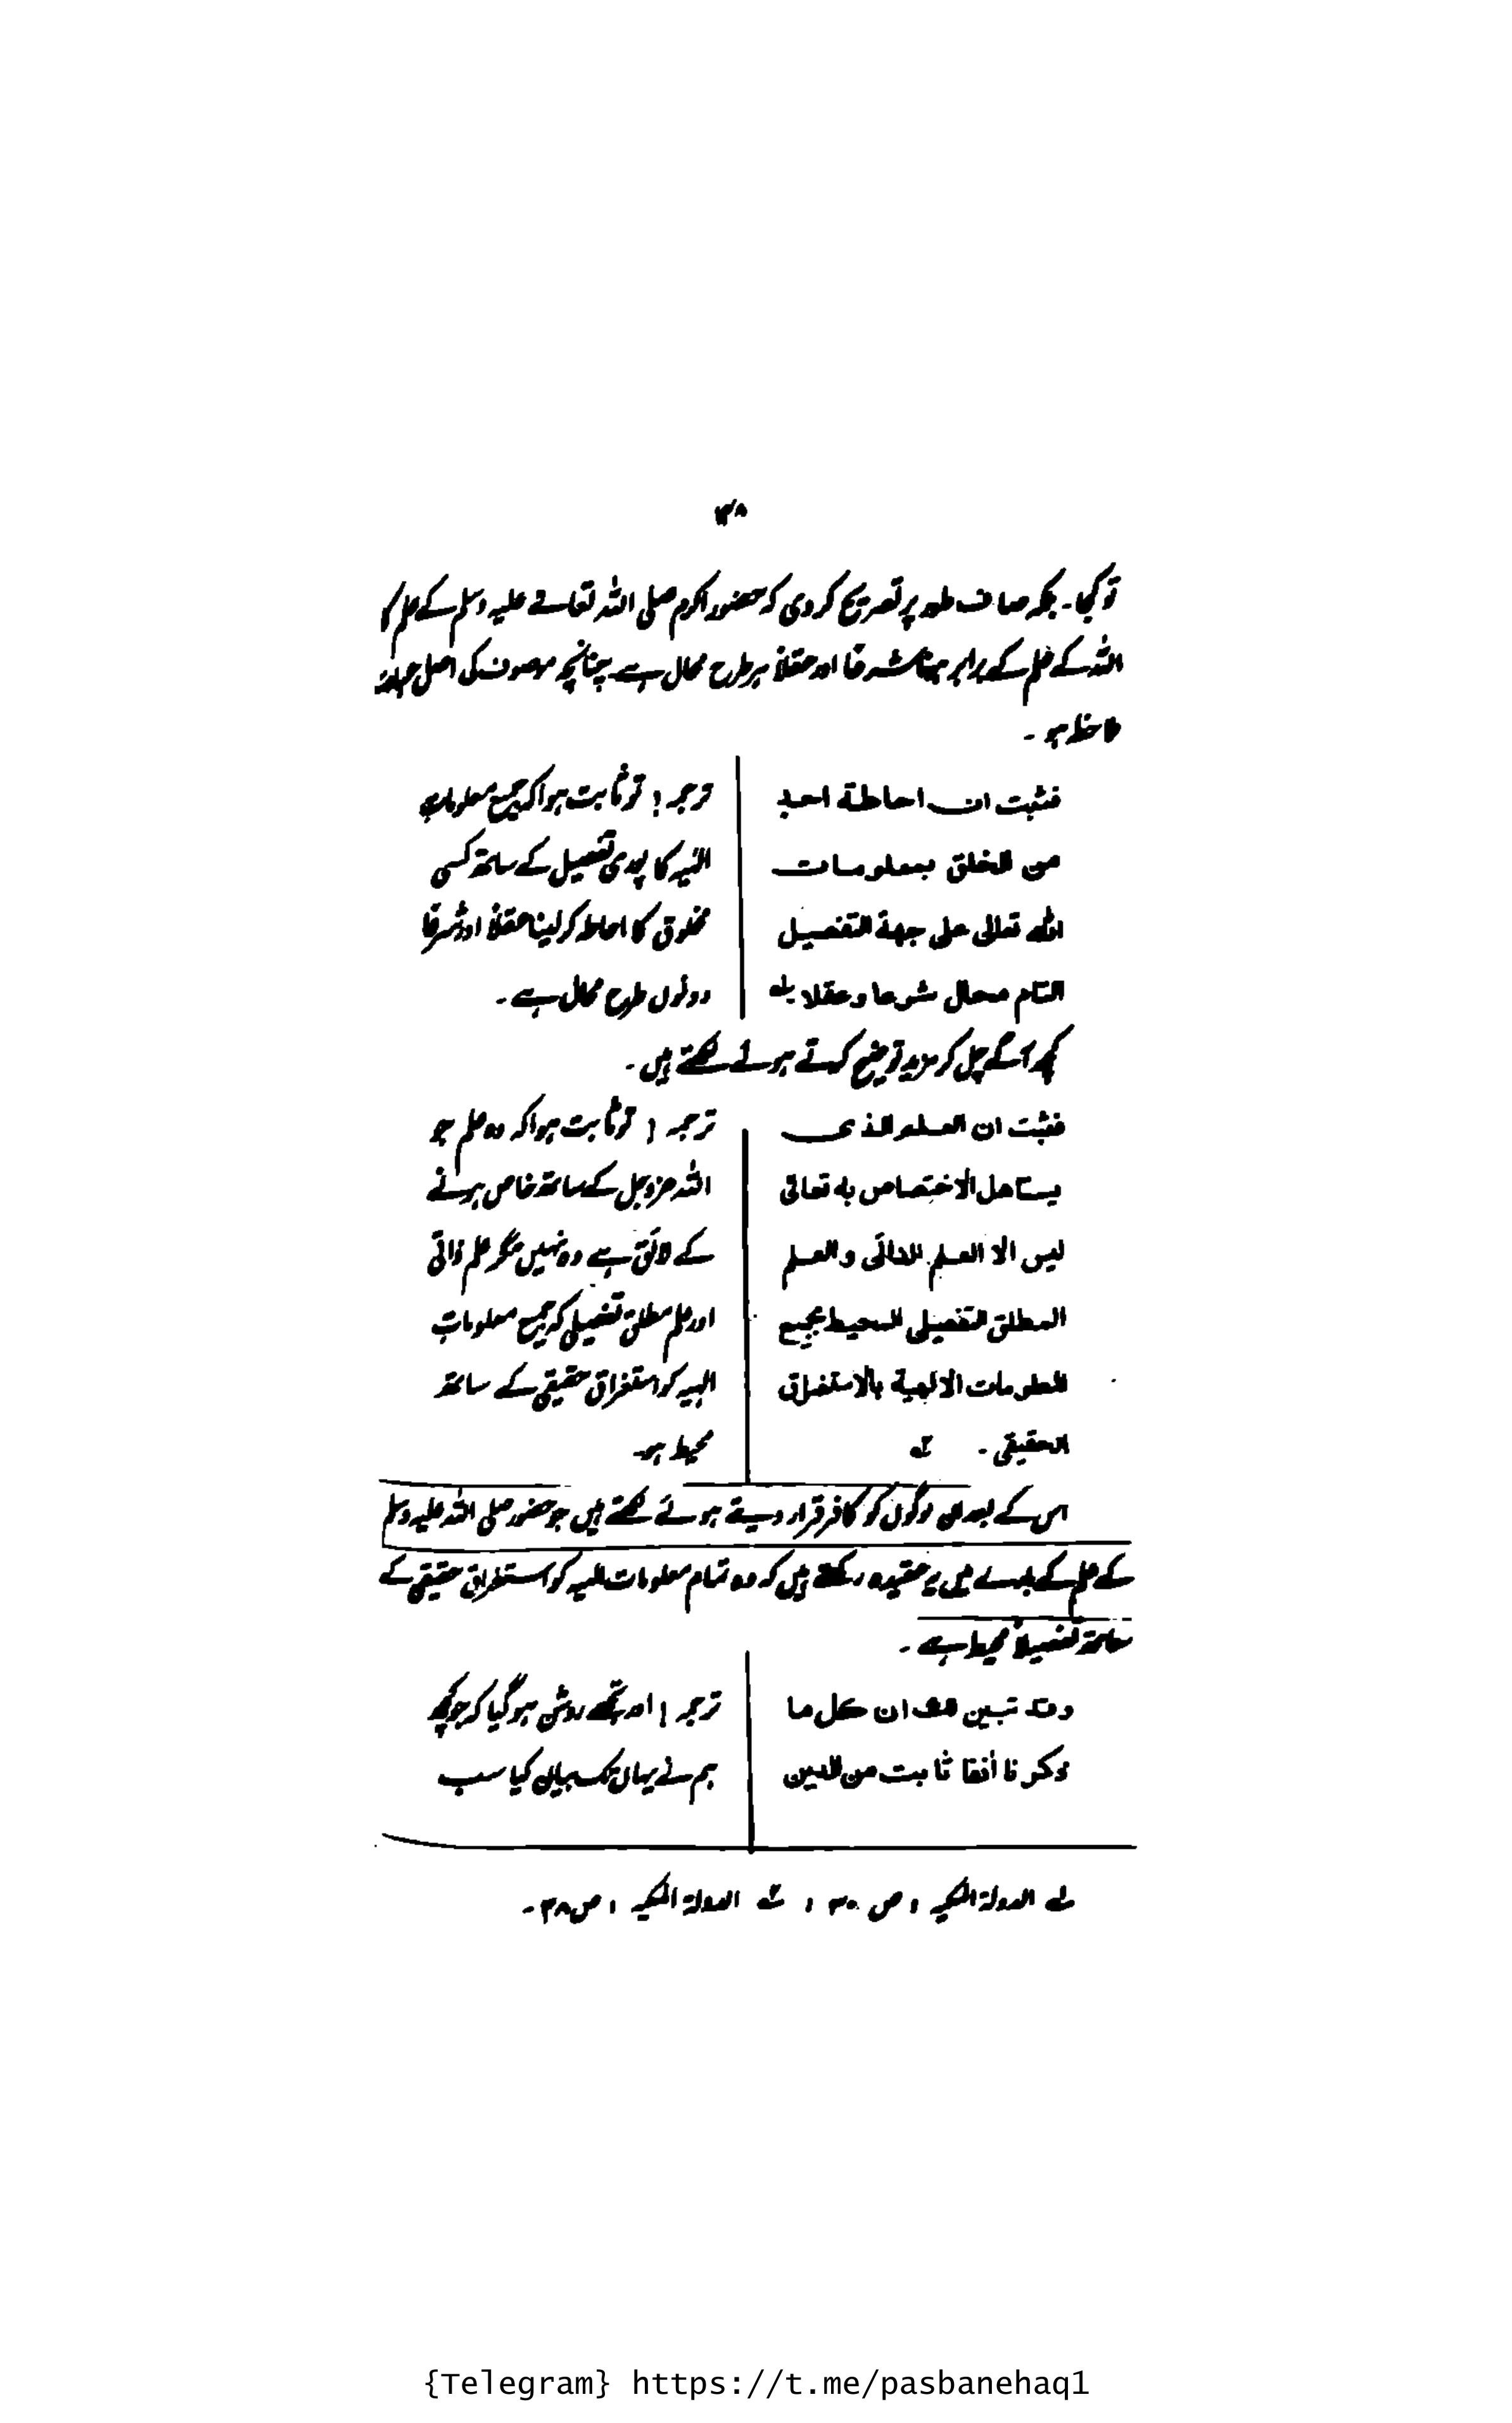 ۴۸
تو کجا۔ بلکہ صاف طور پر تصریح کر دی کہ حضور اکرم صلی اللہ تعالےٰ علیہ وسلم کے علم کا
اللہ کے علم کے برابر ہونا شرعًا اور عقلاً ہر طرح محال ہے۔ چنانچہ موصوف کی اصل عبارت
ملاحظہ ہو۔
فثبت ان احاطة احد
من الخلق بمعلومات
الله تعالى على جهة التفصيل
التام محال شرعا وعقلا ۔ لہ
ترجمہ! تو ثابت ہوا کہ جمیع معلومات
الٰہیہ کا پوری تفصیل کے ساتھ کسی
مخلوق کا احاطہ کر لینا عقلاً اور شرعًا
دونوں طرح محال ہے۔
کچھ آگے چل کر مزید توضیح کرتے ہوئے لکھتے ہیں۔
فثبت ان العلم الذى
يستاهل الاختصاص به تعالى
ليس الا العلم الذاتى والعلم
المطلق التفصيلى المحيط بجميع
المعلومات الالهية بالاستغراق
الحقيقى۔ ۲ہ
ترجمہ! تو ثابت ہوا کہ وہ علم جو
اللہ عزوجل کے ساتھ خاص ہونے
کے لائق ہے وہ نہیں مگر علم ذاتی
اور علم مطلق تفصیلی کہ جمیع معلومات
الہیہ کو استغراق حقیقی کے ساتھ
محیط ہو۔
اس کے بعد ان لوگوں کو کافر قرار دیتے ہوئے لکھتے ہیں جو حضور صلی اللہ علیہ وسلم
کے علم کے بارے میں یہ عقیدہ رکھتے ہیں کہ وہ تمام معلومات الٰہیہ کو استغراق حقیقی کے
ساتھ تفصیلاً محیط ہے۔
وقد تبين لك ان كل ما
ذكرنا أنفا ثابت من الدين
ترجمہ! اور تجھے روشن ہو گیا کہ جو کچھ
ہم نے یہاں تک بیان کیا سب
لہ الدولۃ المکیہ، ص ۳۰، ۲ہ الدولۃ المکیہ، ص ۳۸۔
{Telegram} https://t.me/pasbanehaq1